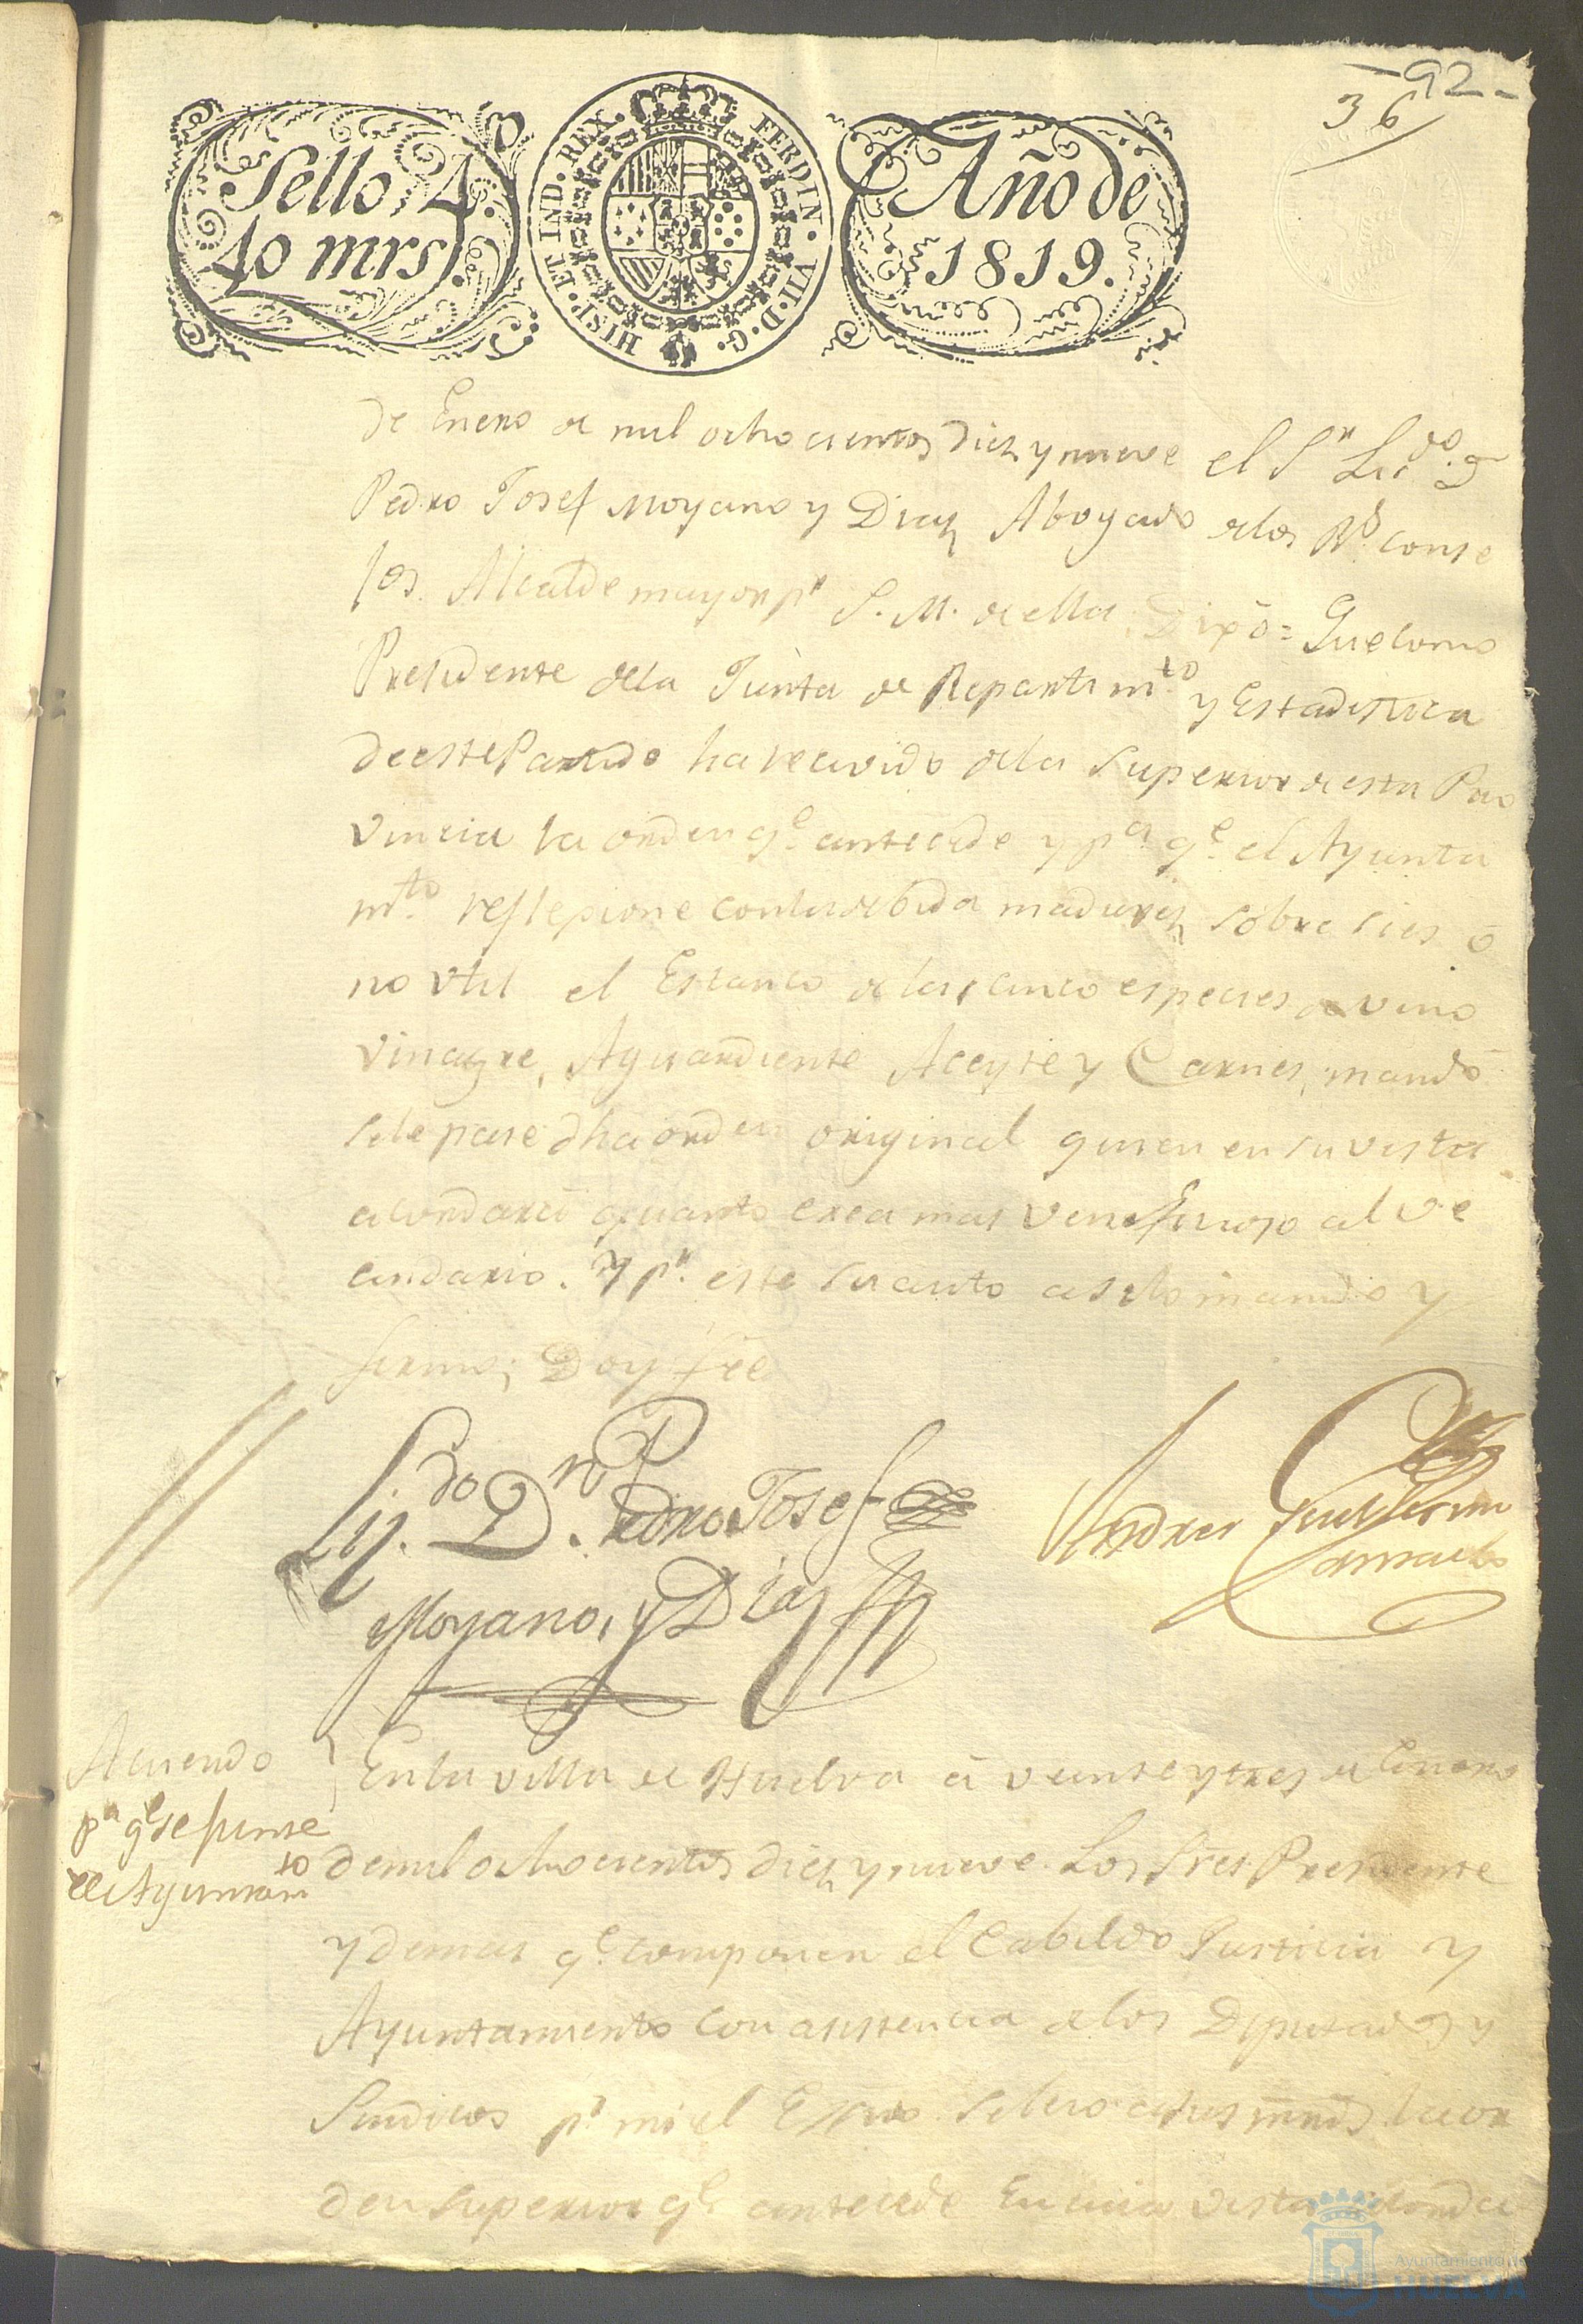 92
36
Sello 4.º
40 mrs.
HISP. ET IND. REX. FERDIN. VII. D. G.
Año de
1819.
de Enero de mil ochocientos diez y nueve el Sr Licdo. Dn
Pedro Josef Moyano y Diaz Abogado de los Rs. conse
jos. Alcalde mayor pr S. M. de ella, Dixo = Que como
Presidente de la Junta de Repartimto. y Estadistica
de este Partido ha recivido de la Superior de esta Pro
vincia la orden qe. antecede y pa. qe. el Ayunta
mto. reflexione con la debida madurez sobre si es ó
no util el Estanco de las cinco especies de vino
vinagre, Aguardiente Aceyte y Carnes, mandó
se le pase dha orden original quien en su vista
acordará quanto crea mas veneficioso al ve
cindario. Y pr. este su auto asi lo mando y
firmo; Doy fée
Lij.do Dn. Pedro Josef
Moyano, y Diaz
Andres Guillermo
Camacho
Acuerdo
pa qe se junte
el Ayuntamto
En la villa de Huelva á veinte y tres de Enero
de mil ochocientos diez y nueve. Los Sres. Presidente
y demas qe. componen el Cabildo Justicia y
Ayuntamiento con asistencia de los Diputados y
Sindicos pr. mi el Essno. se leio a sus mrds. la or
den superior qe. antecede En cuia vista acorda
Ayuntamiento de
HUELVA